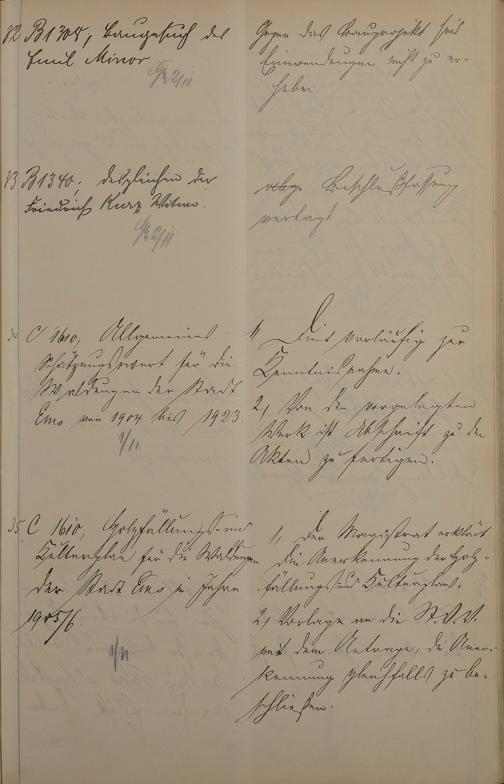 32 B1305, Baugesuch des
Emil Minor
Gegen das Bauprojekt sind
Einwendungen nicht zu er-
heben.
33 B1340, desgleichen der
Friedrich Kurz Witwe.
Beschlußfassung
vertagt
34 C 1610, Allgemeines
Schätzungswerk für die
Waldungen der Stadt
Ems von 1904 bis 1923.
1/11
1, Dient vorläufig zur
Kenntnisnahme.
2, Von dem vorgelegten
Werk ist Abschrift zu den
Akten zu fertigen.
35. C 1610, Holzfällungs- und
Kulturplan für die Waldungen
der Stadt Ems im Jahre
1905/6.
1/11
1, Der Magistrat erklärt
die Anerkennung des Holz-
fällungs und Kulturplans.
2, Vorlage an die St.V.V.
mit dem Antrage, die Aner-
kennung gleichfalls zu be-
schließen.